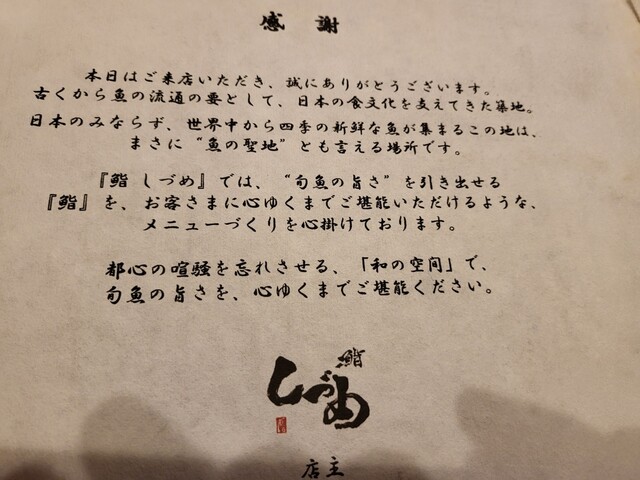 感謝
本日はご来店いただき、誠にありがとうございます。
古くから魚の流通の要として、日本の食文化を支えてきた築地。
日本のみならず、世界中から四季の新鮮な魚が集まるこの地は、
まさに“魚の聖地”とも言える場所です。
『鮨 しづめ』では、“旬魚の旨さ”を引き出せる
『鮨』を、お客さまに心ゆくまでご堪能いただけるような、
メニューづくりを心掛けております。
都心の喧騒を忘れさせる、「和の空間」で、
旬魚の旨さを、心ゆくまでご堪能ください。
鮨
しづめ
店主